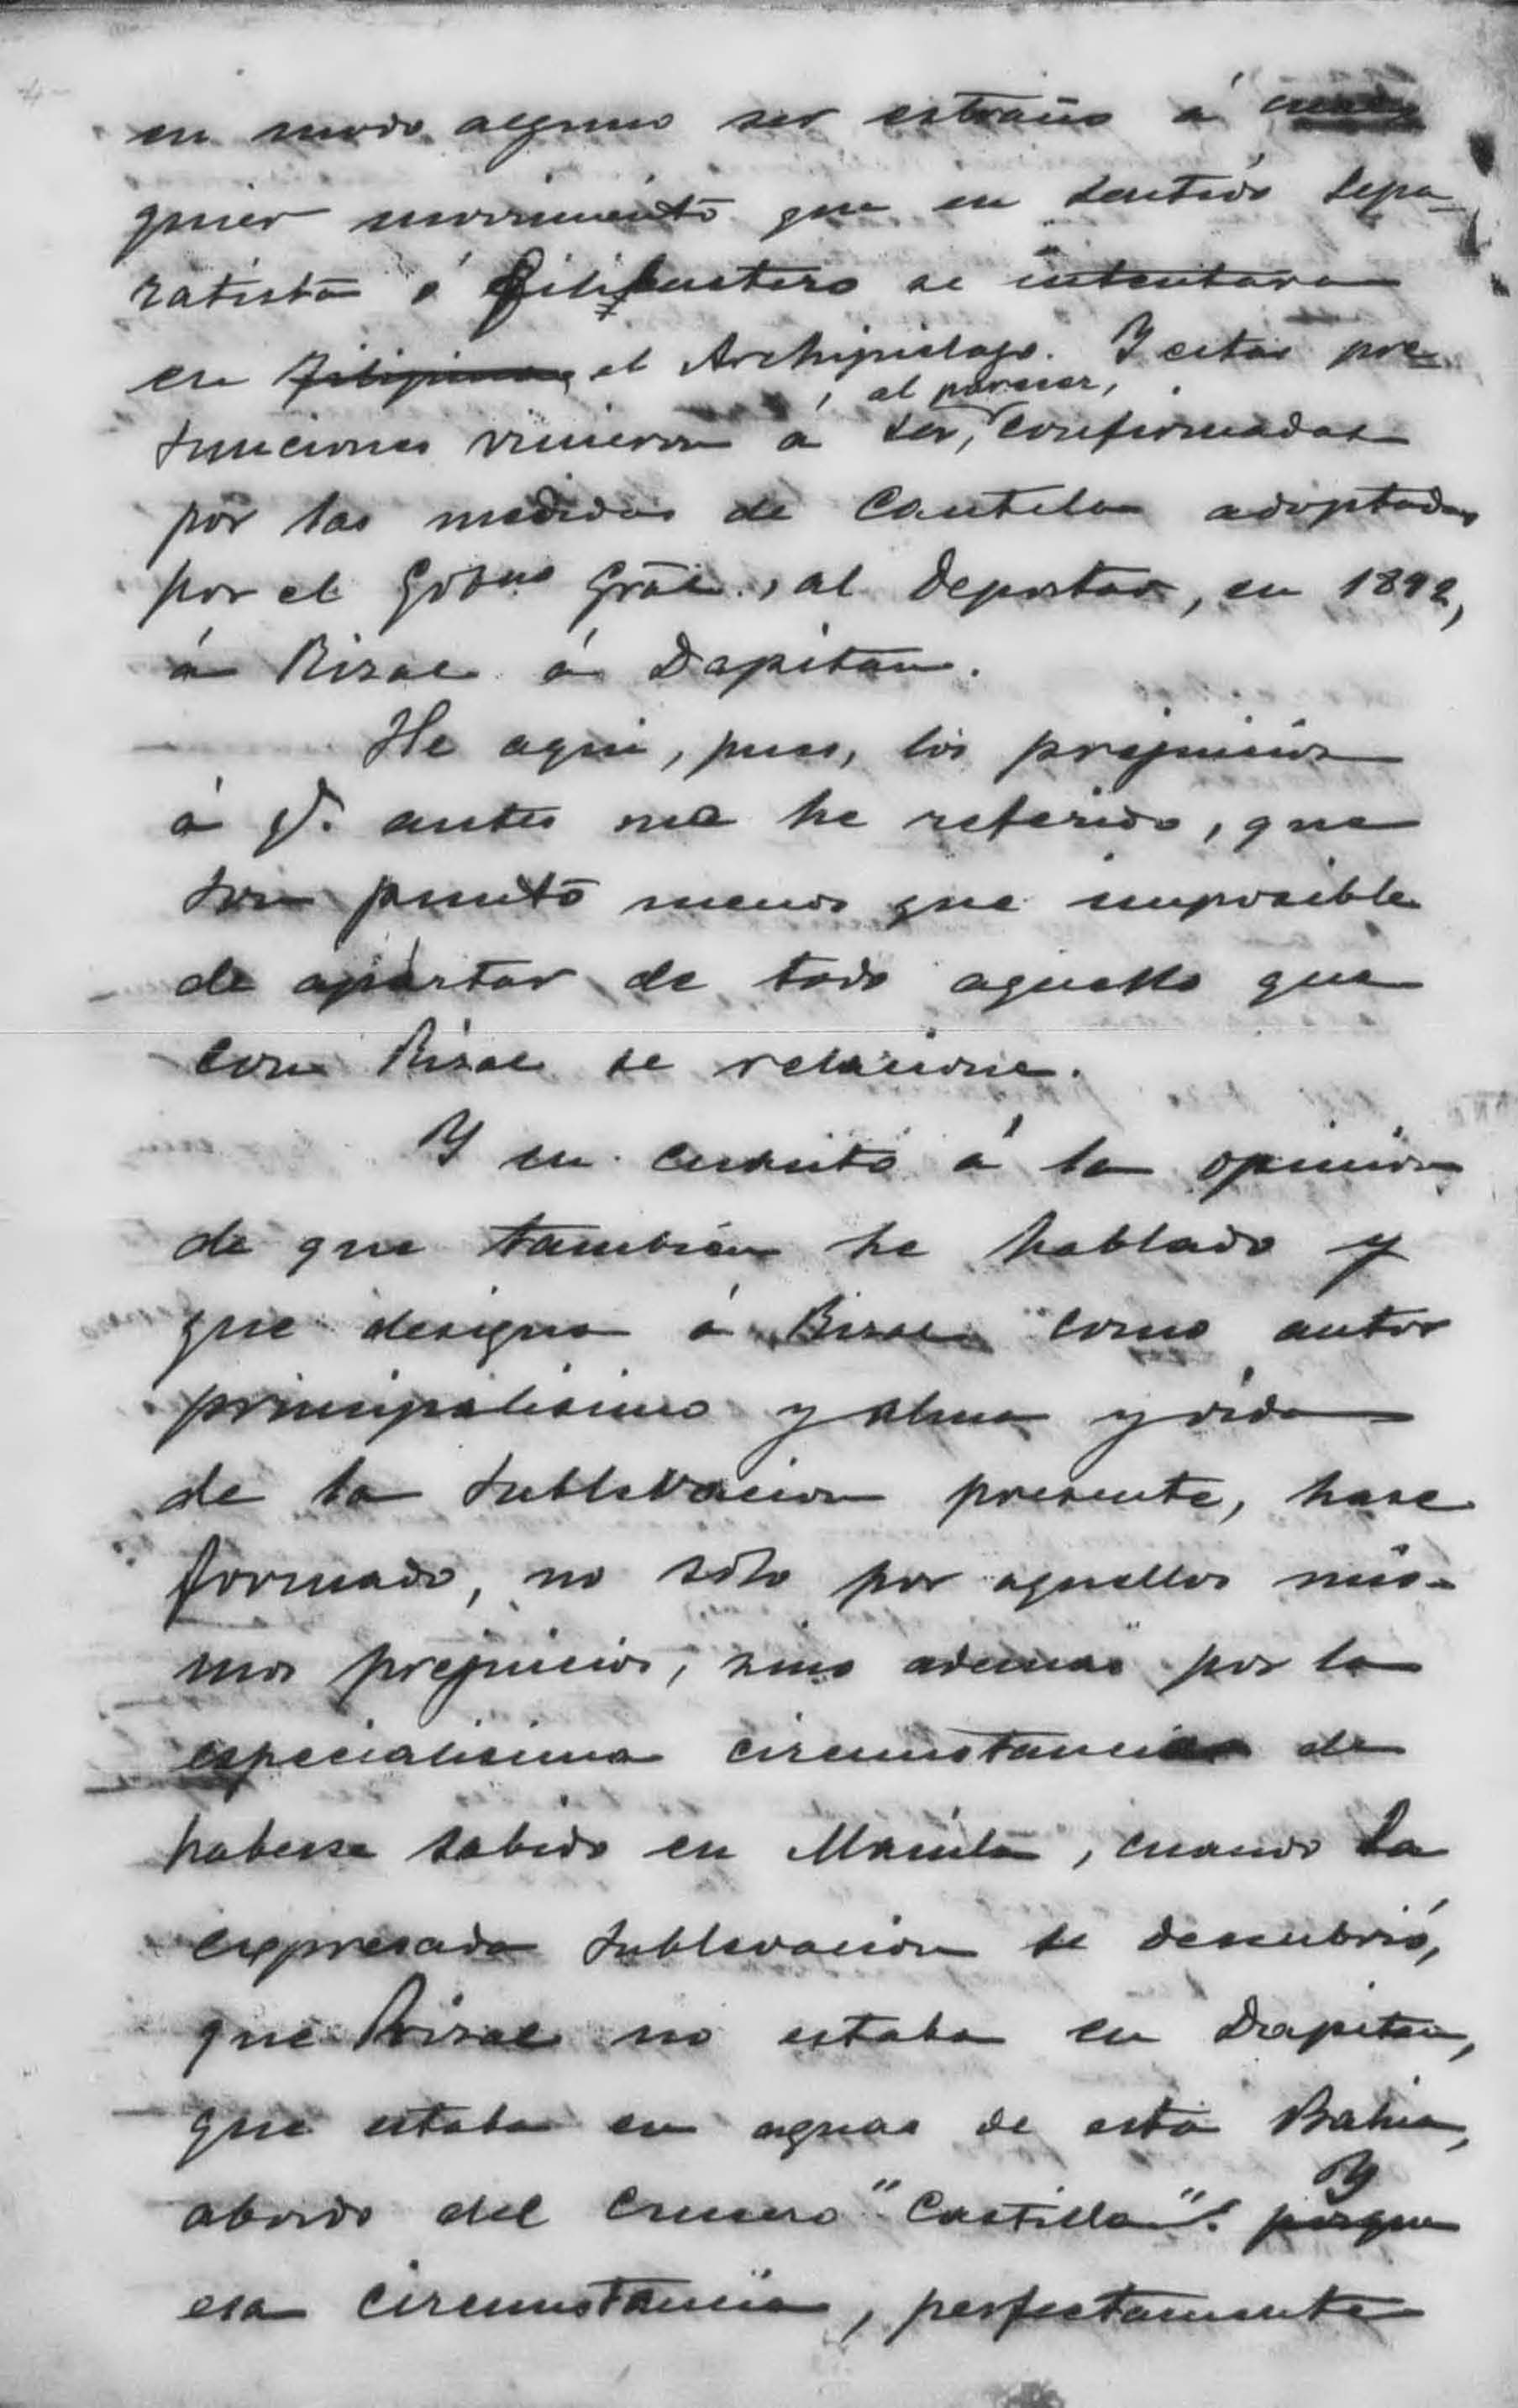 en modo alguno ser estraño á cual
quier movimiento que en sentido sepa-
ratista ó filibustero se intentara
en Filipinas el Archipielago. Y estas pre
, al parecer,
sunciones vinieron á ser, confirmadas
por las medidas de cautela adoptadas
por el Gobno Gral., al deportar, en 1892,
á Rizal á Dapitan.
He aqui, pues, los prejuicios
á q. antes me he referido, que
son punto menos que imposible
de apartar de todo aquello que
con Rizal se relacione.
Y en cuanto á la opinion
de que tambien he hablado y
que designa á Rizal como autor
principalisimo y alma y vida
de la sublevacion presente, hase
formado, no sólo por aquellos mis-
mos prejuicios, sino ademas por la
especialisima circunstancia de
haberse sabido en Manila, cuando la
expresada sublevacion se descubrió,
que Rizal no estaba en Dapitan,
que estaba en aguas de esta Bahia,
abordo del crucero "Castilla". porque
Y
esa circunstancia, perfectamente